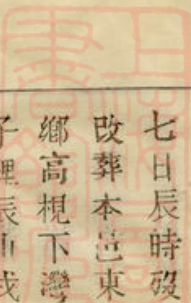 七日辰時歿
改葬本邑東
鄉高梘下灣
子 辰山戌